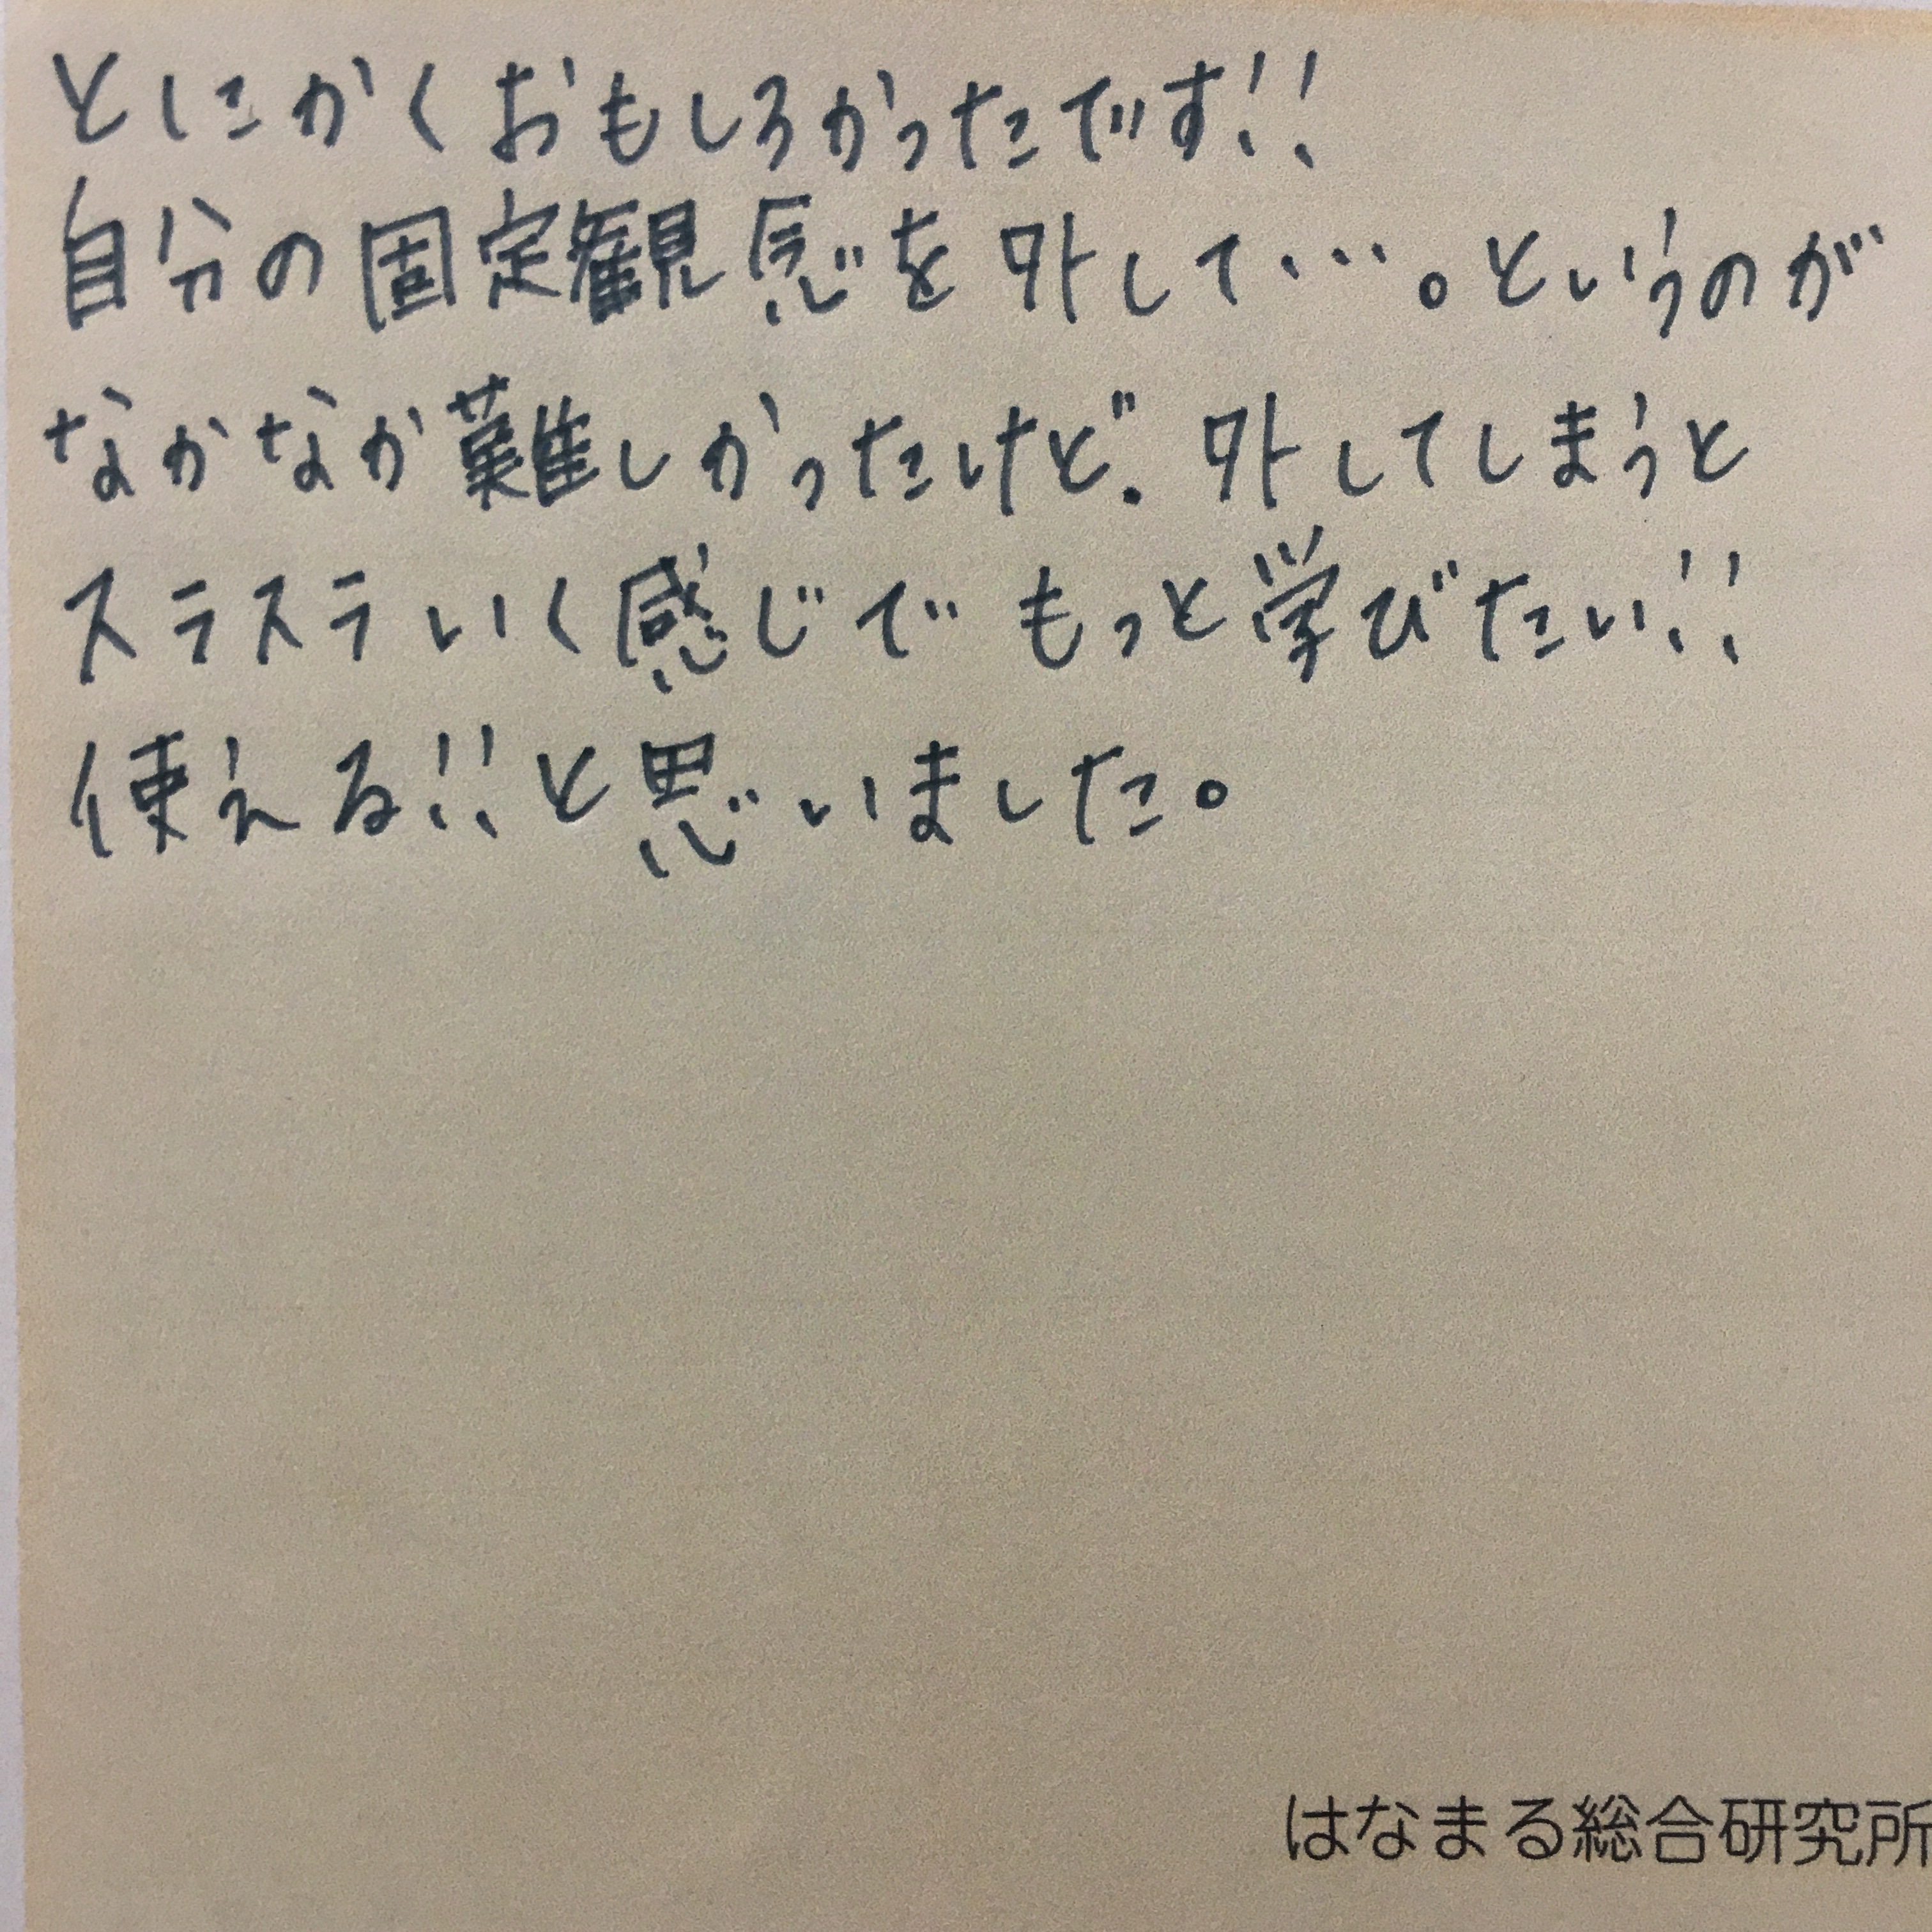 とにかくおもしろかったです!!
自分の固定観念を外して・・・。というのが
なかなか難しかったけど、外してしまうと
スラスラいく感じで もっと学びたい!!
使える!!と思いました。
はなまる総合研究所